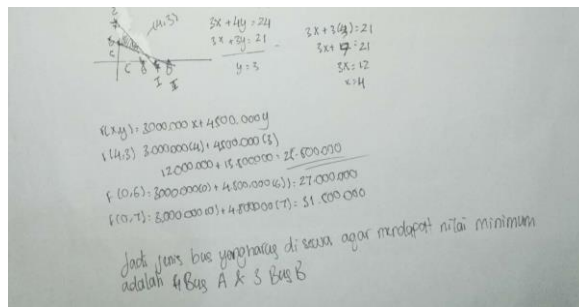 (4,3)
3x + 4y = 24
3x + 3y = 21
y = 3
3x + 3(3) = 21
3x + 9 = 21
3x = 12
x = 4
f(x,y) = 3000.000 x + 4500.000y
f(4,3) 3.000.000(4) + 4500.000(3)
12.000.000 + 13.500.000 = 25.500.000
f(0,6) = 3000.000(0) + 4.500.000(6) = 27.000.000
f(0,7) = 3.000.000(0) + 4.500.000(7) = 31.500.000
Jadi jenis bus yang harus di sewa agar mendapat nilai minimum
adalah 4 Bus A & 3 Bus B